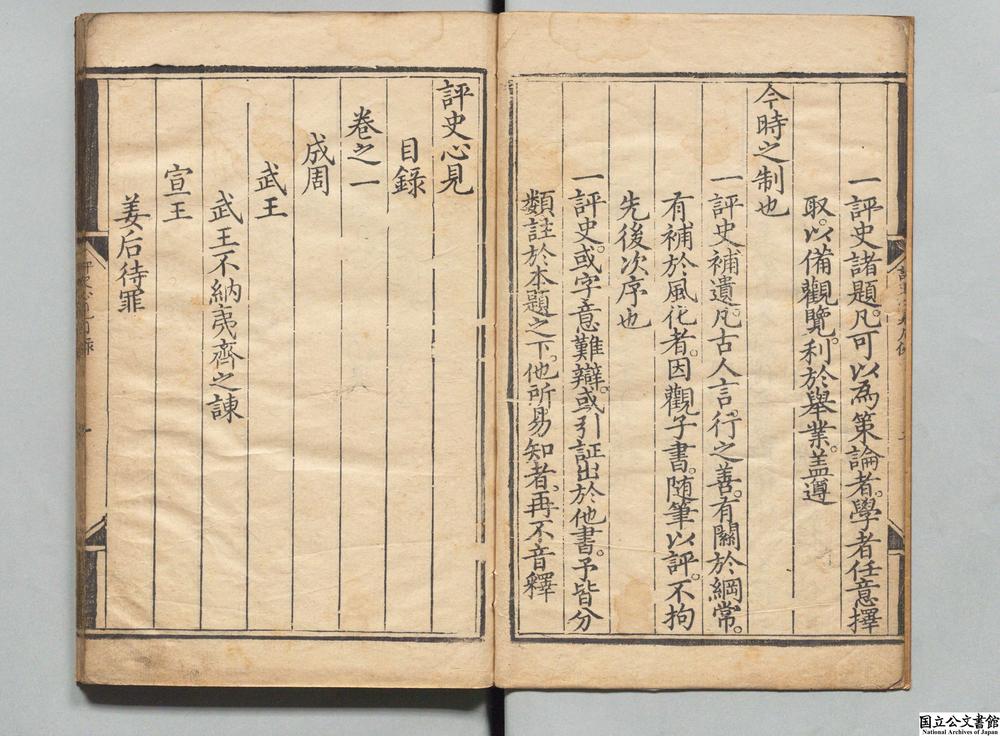 一評史諸題。凡可以為策論者。學者任意擇
取。以備觀覽。利於舉業。盖遵
今時之制也
一評史補遺。凡古人言。行之善。有關於綱常。
有補於風化者。因觀子書。随筆以評。不拘
先後次序也
一評史。或字意難辯。或引証出於他書。予皆分
類註於本題之下。他所易知者、再不音釋
評史心見
目錄
卷之一
成周
武王
武王不納夷齊之諫
宣王
姜后待罪
国立公文書館
National Archives of Japan